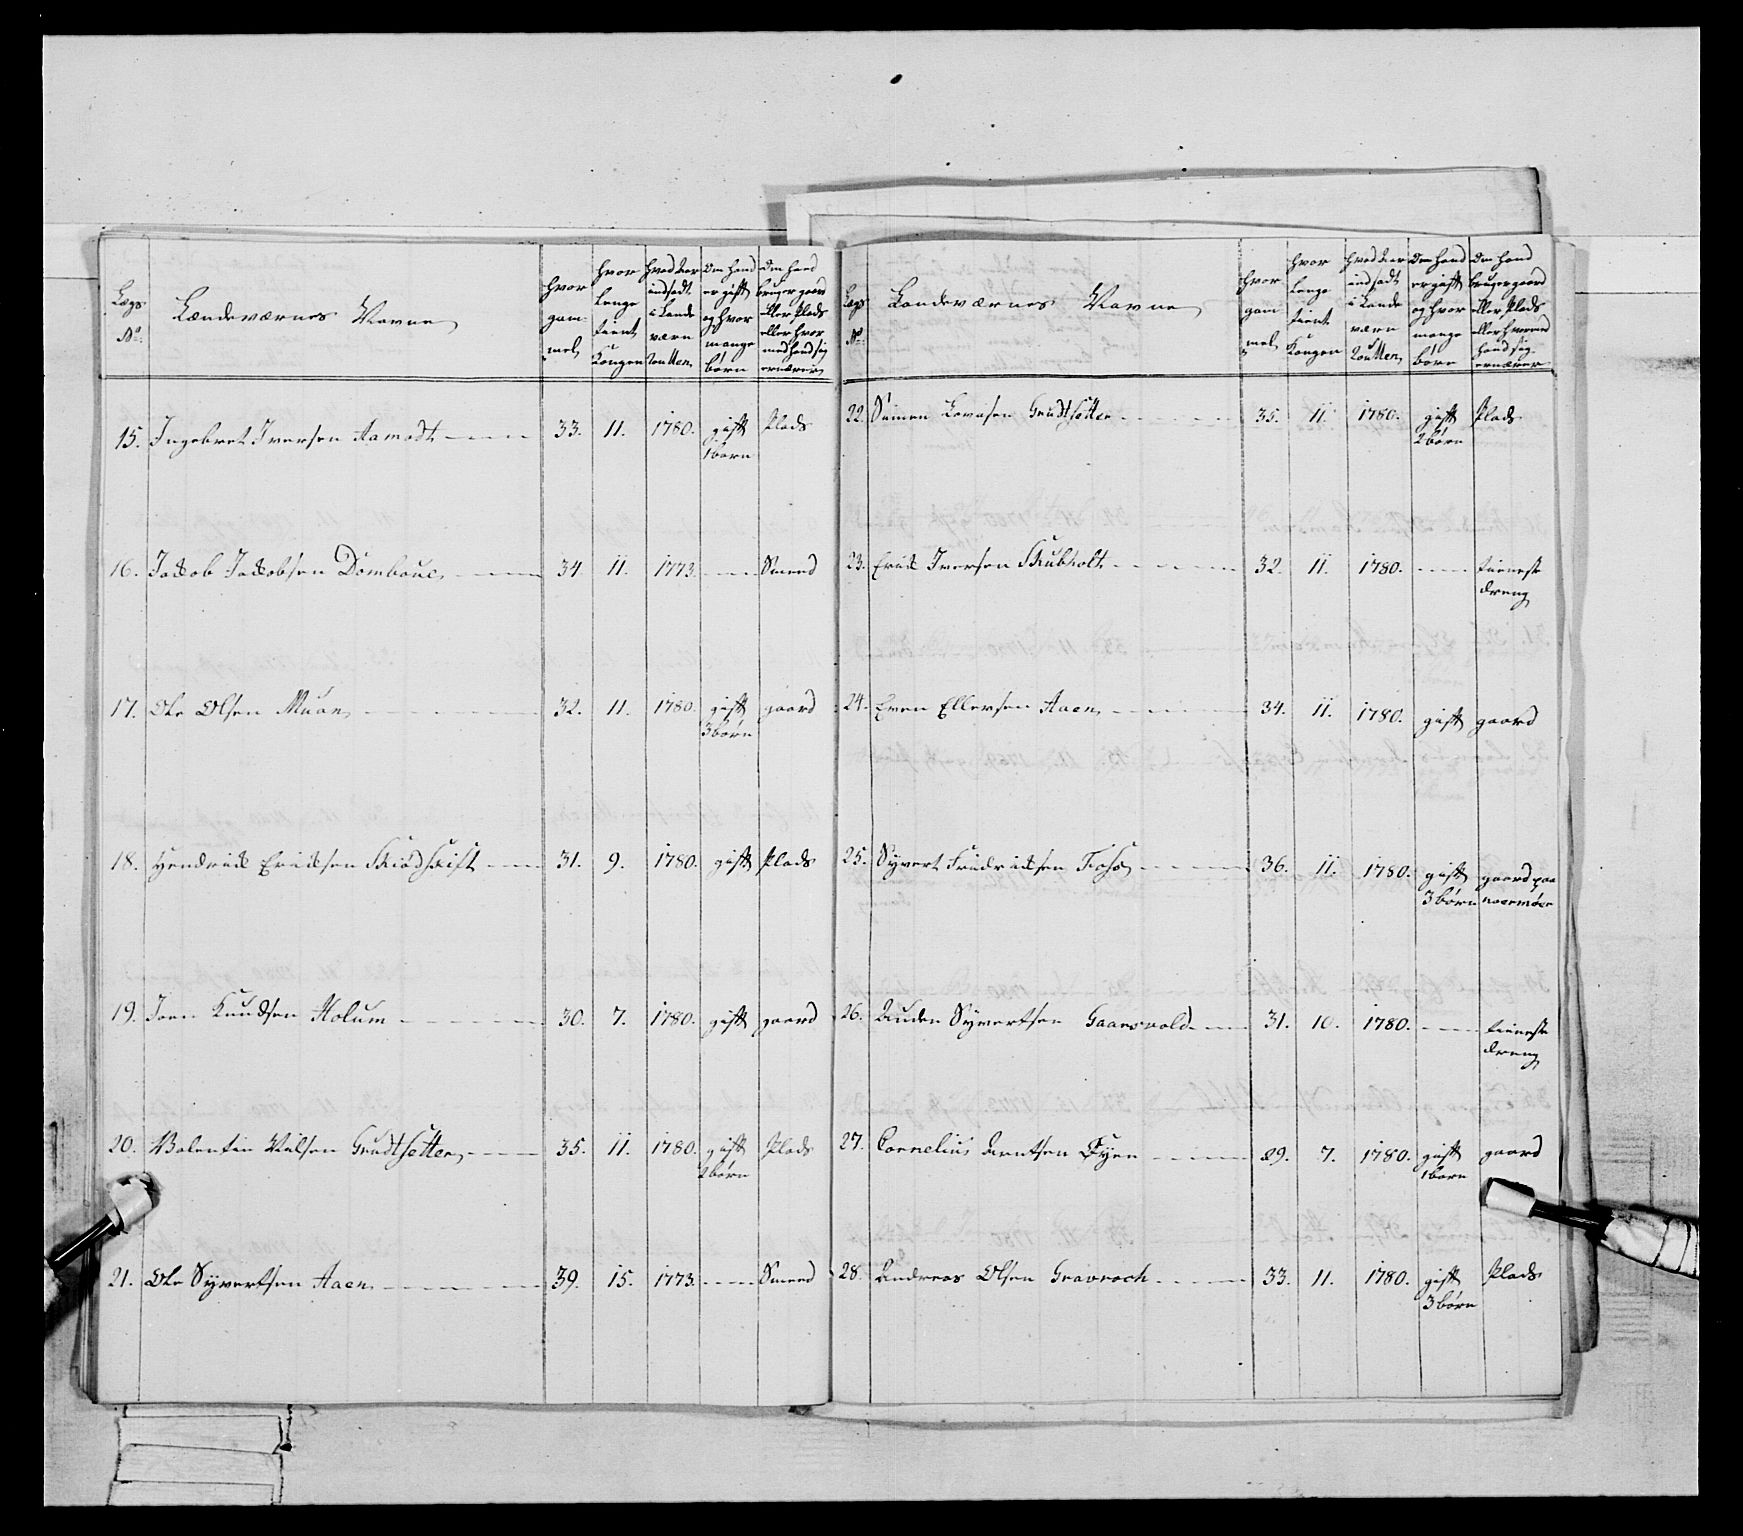 Lægs No: | Landeværnes Navne | hvor gam mel | hvor lenge tient Kongen | hvad Aar indsadt i Lande værn Roullen | Om hand er gift og hvor mange børn | Om hand bruger gaard eller Plads eller hvor med hand sig ernærer
15. Ingebret Iversen Aamodt 33. 11. 1780. gift 1 barn Plads
16. Jakob Jakobsen Domboue 34. 11. 1773. Smed
17. Ole Olsen Muan 32. 11. 1780. gift 3 børn gaard
18. Hendrik Eriksen 31. 9. 1780. gift Plads
19. Joen Knudsen Holum 30. 7. 1780. gift gaard
20. Valentin Nilsen Grudtsetter 35. 11. 1780. gift 2 børn Plads
21. Ole Syvertsen Aaen 39. 15. 1773. Smed
Lægs No: | Landeværnes Navne | hvor gam mel | hvor lenge tient Kongen | hvad Aar indsadt i Lande værn Roullen | Om hand er gift og hvor mange børn | Om hand bruger gaard eller Plads eller hvormed hand sig ernærer
22. Simen Grudtsetter 35. 11. 1780. gift 2 børn Plads
23. Erik Iversen Skubholt 32. 11. 1780. tieneste dreng
24. Even Ellevsen Aaen 34. 11. 1780. gift gaard
25. Syvert Fridriksen 36. 11. 1780. gift 3 børn gaard paa nordmøer
26. Auden Syvertsen Gaarsvold 31. 10. 1780. tieneste dreng
27. Cornelius Arntsen Øyen 29. 7. 1780. gift 1 barn gaard
28. Andreas Olsen Gravroch 33. 11. 1780. gift 3 børn Plads